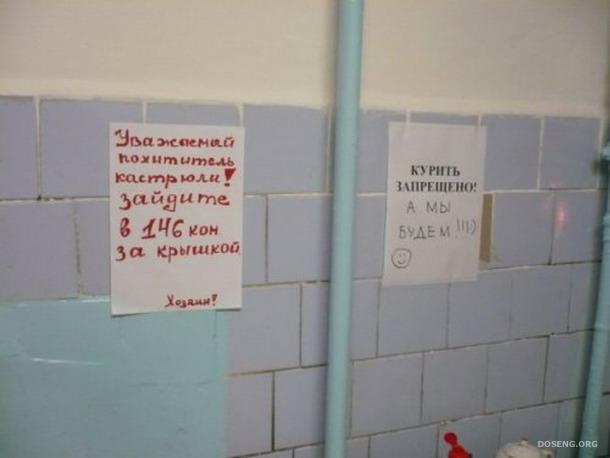 Уважаемый
похититель
кастрюли!
зайдите
в 146 кон
за крышкой.
Хозаин!
КУРИТЬ
ЗАПРЕЩЕНО!
А МЫ
БУДЕМ!!!:)
DOSENG.ORG